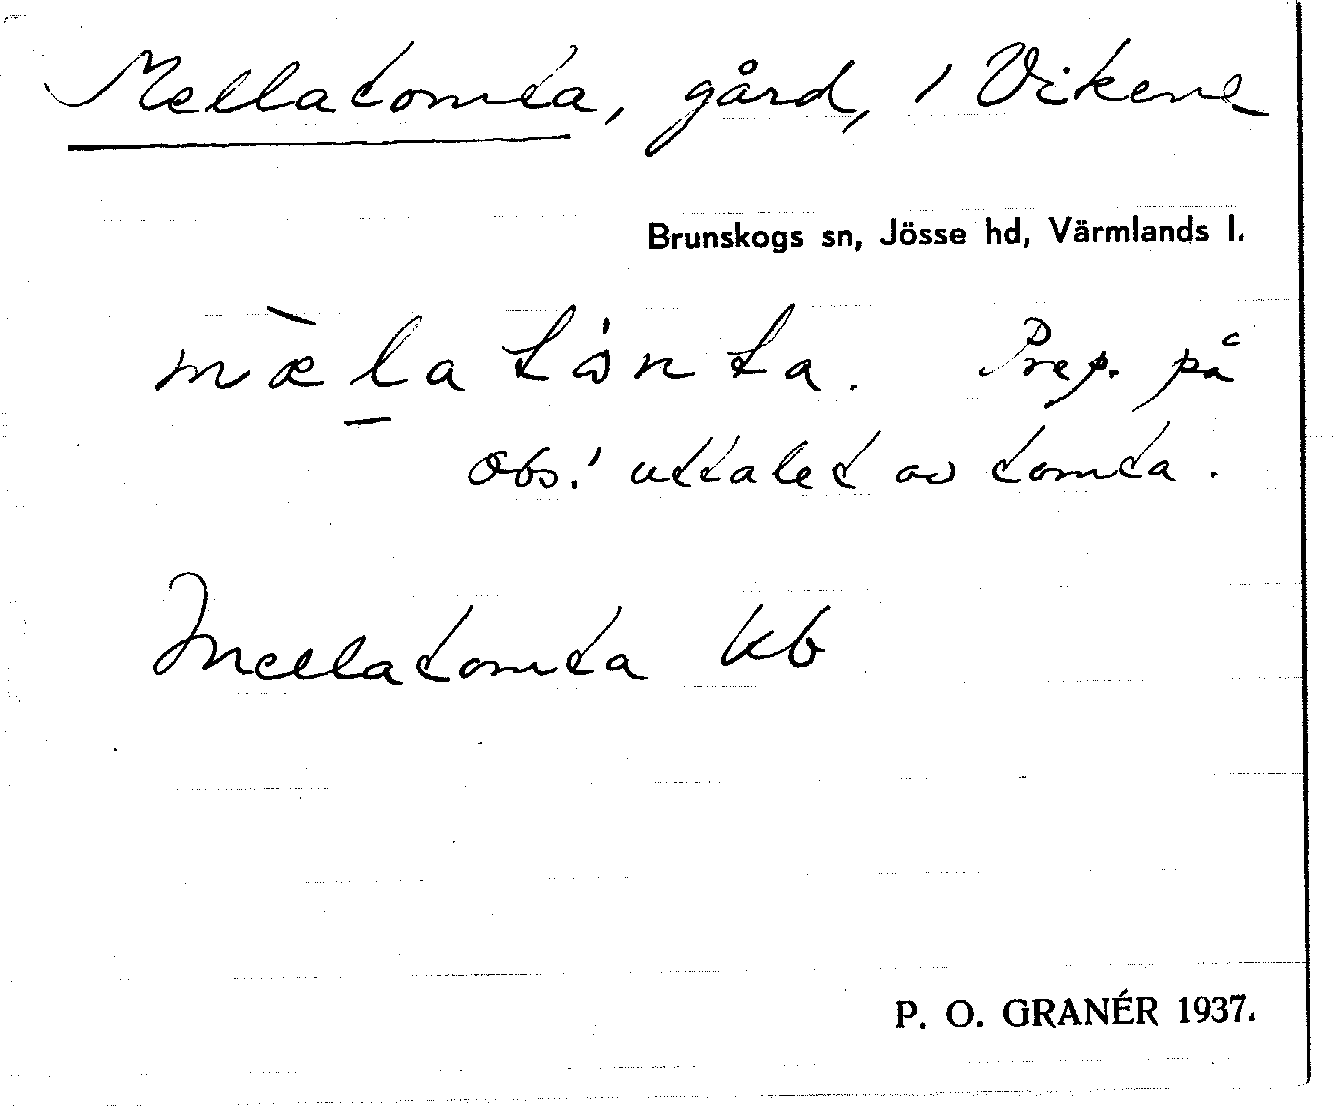 Mellatomta, gård, / Vikene
Brunskogs sn, Jösse hd, Värmlands l.
mæ̀l̠a tȧ̊nta. Prep. på
Obs! uttalet av tomta.
Mellatomta kb
P. O. GRANÉR 1937.